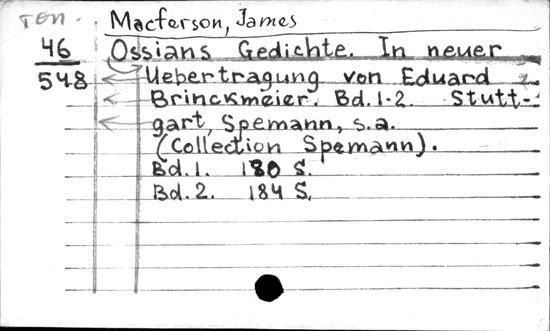 Macferson, James
46
Ossians Gedichte. In neuer
548
Uebertragung von Eduard
Brinckmeier. Bd. 1-2. Stutt-
gart, Spemann, s.a.
(Collection Spemann).
Bd. 1. 180 S.
Bd. 2. 184 S.